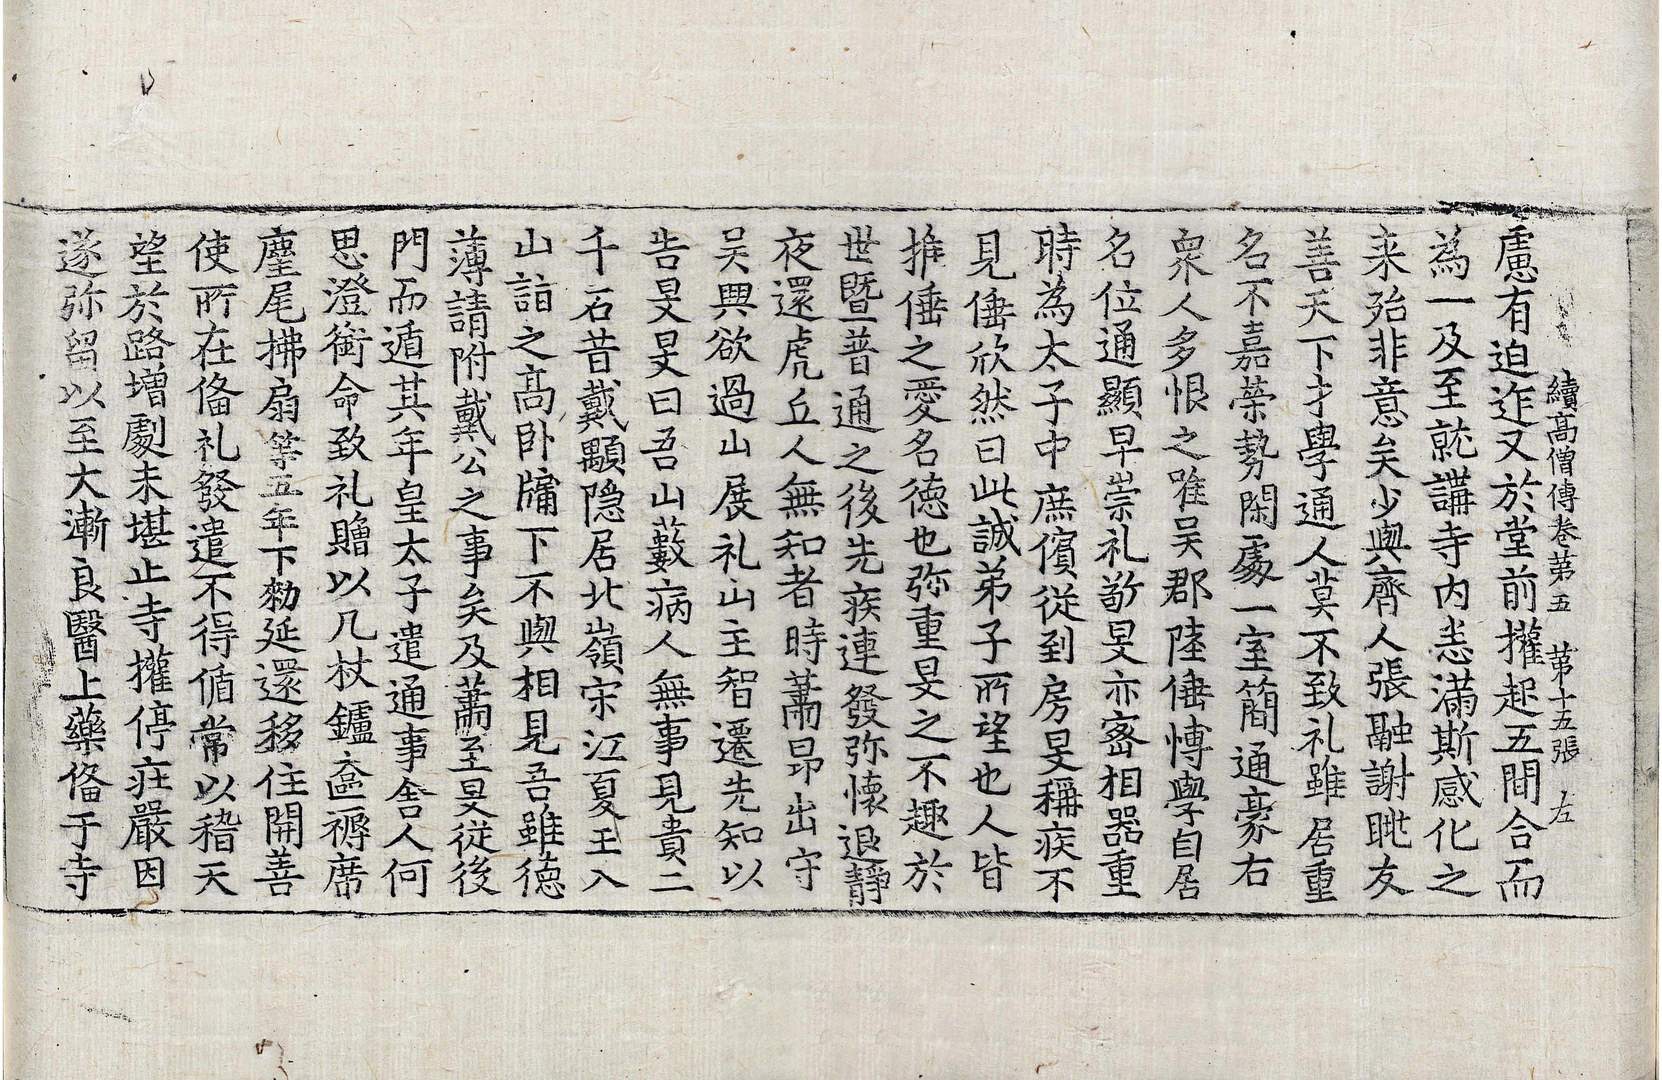 續高僧傳卷苐五　苐十五張　左
慮有迫迮又於堂前攉起五間合而
為一及至就講寺内恙滿斯感化之
来殆非意矣少與齊人張融謝眺友
善天下才學通人莫不致礼雖居重
名不嘉榮勢閑處一室簡通豪右
衆人多恨之唯吴郡陸倕博學自居
名位通顯早崇礼敬旻亦密相器重
時為太子中庶儐從到房旻稱疾不
見倕欣然曰此誠弟子所望也人皆
推倕之愛名德也弥重旻之不趣於
世暨普通之後先疾連發弥懷退靜
夜還虎丘人無知者時蕭昂出守
吴興欲過山展礼山主智遷先知以
告旻旻曰吾山藪病人無事見貴二
千石昔戴顒隐居北嶺宋江夏王入
山詣之髙卧牗下不與相見吾雖德
薄請附戴公之事矣及蕭至旻從後
門而遁其年皇太子遣通事舍人何
思澄銜命致礼贈以几杖鑪奩褥席
麈尾拂扇等五年下勑延還移住開善
使所在俻礼發遣不得循常以稽天
望於路增劇未堪止寺攉停莊嚴因
遂弥留以至大漸良醫上藥俻于寺